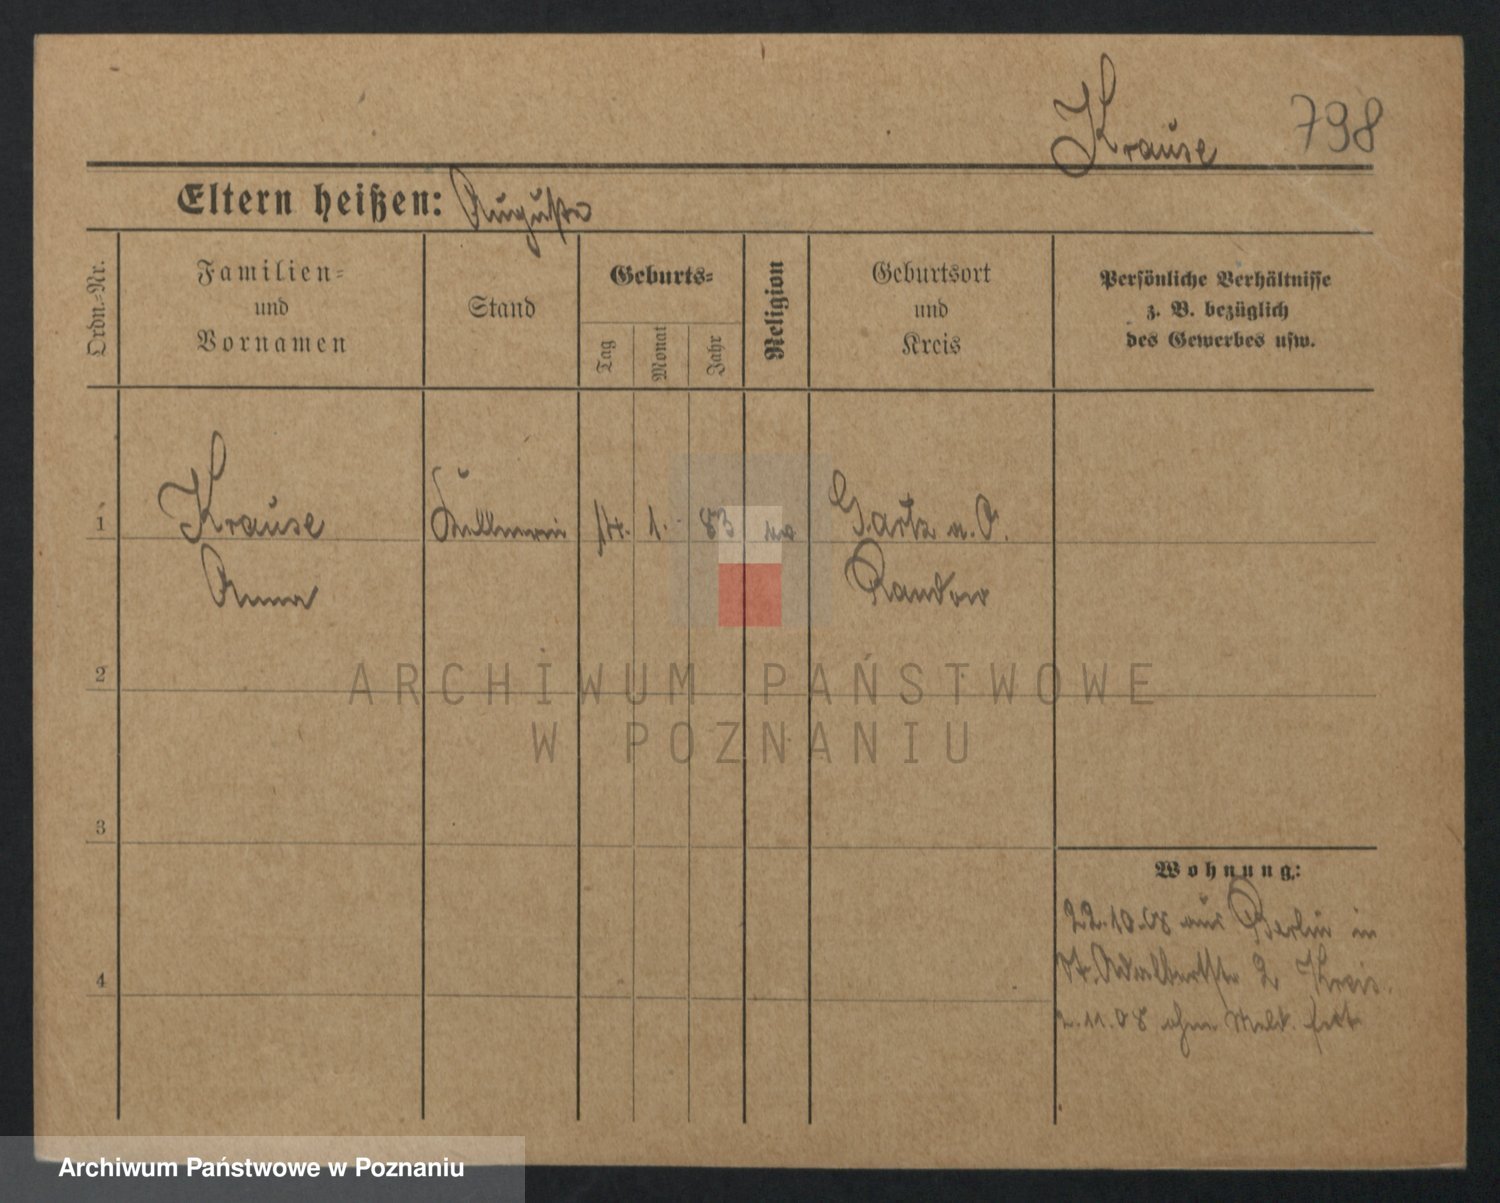 Krause 798
Eltern heißen: Auguste
Ordn.-Nr.
Familien-
und
Vornamen
Stand
Geburts-
Tag
Monat
Jahr
Religion
Geburtsort
und
Kreis
Persönliche Verhältnisse
z. B. bezüglich
des Gewerbes usw.
1 Krause Kellnerin 14. 1. 83 Gartz a. O.
Anna Randow
2
ARCHIWUM PAŃSTWOWE
W POZNANIU
3
Wohnung:
22.10.08 aus Berlin in
St. Adalbertstr 2
4
2.11.08 ohne Meld. fort
Archiwum Państwowe w Poznaniu